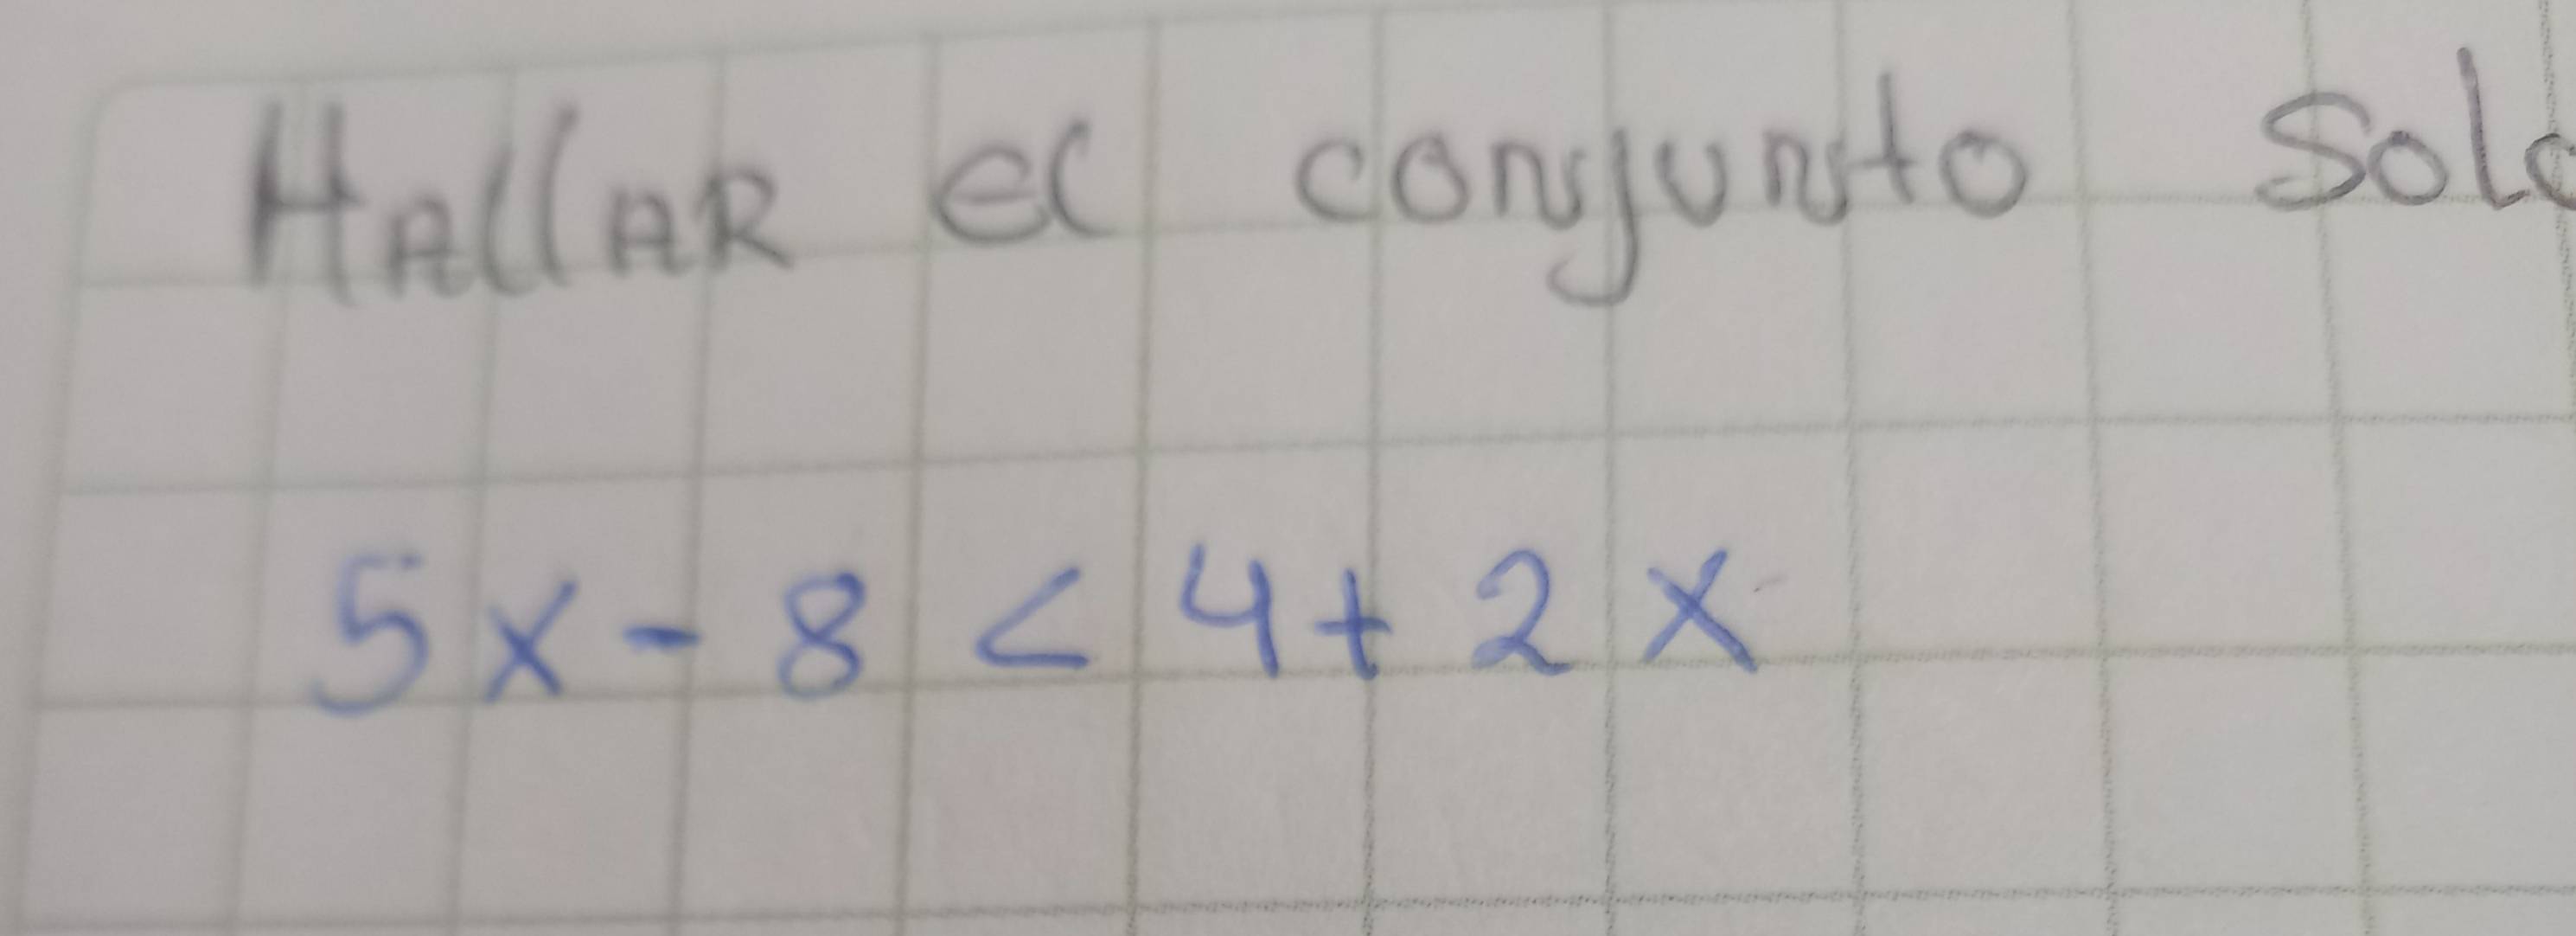 HAllAR el conjunto
5x - 8 < 4 + 2x